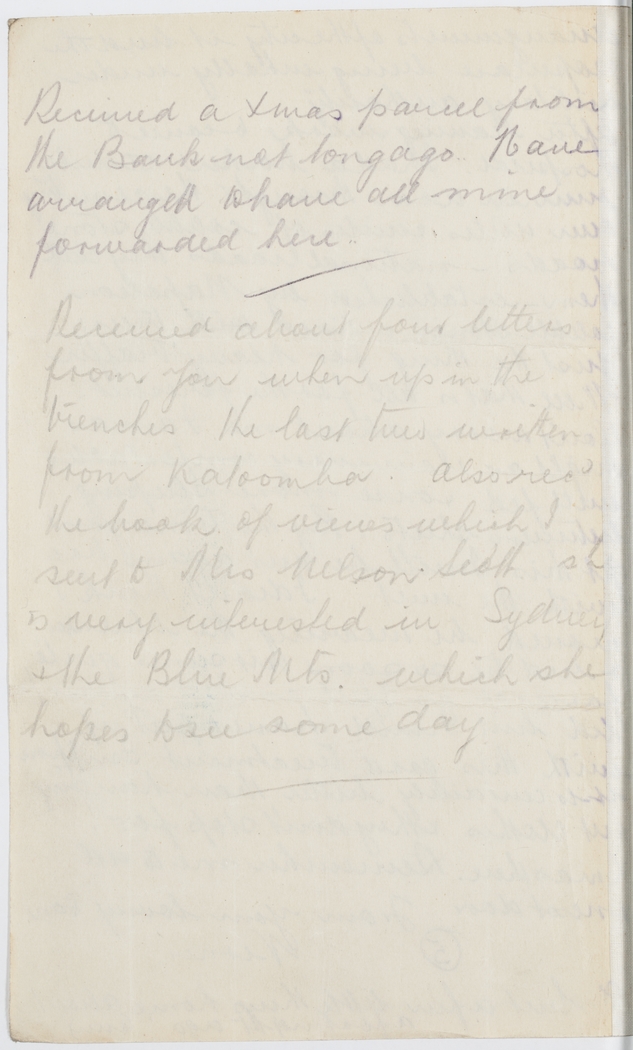 Received a Xmas parcel from
the Bank not long ago. Have
arranged to have all mine
forwarded here.
Received about four letters
from you when up in the
trenches the last two written
from Katoomba. Also recd
the book of views which I
sent to Mrs Nelson Scott she
is very interested in Sydney
& the Blue Mts. which she
hopes to see some day